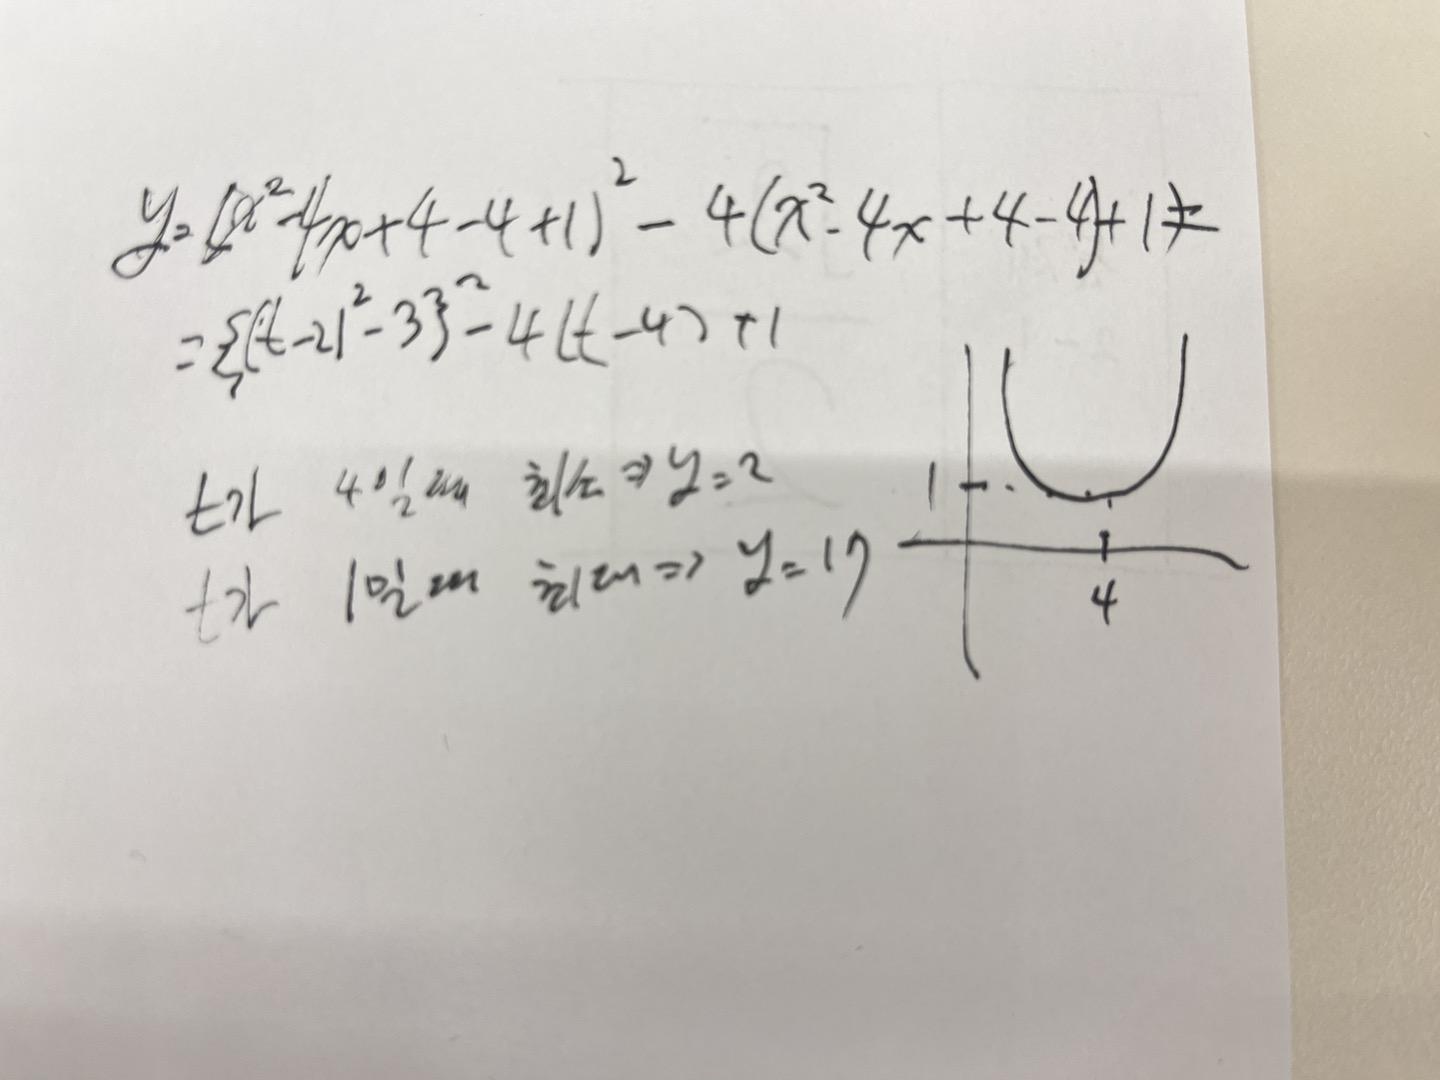 y=(x²-4x+4-4+1)²-4(x²-4x+4-4)+1
={(t-2)²-3}²-4(t-4)+1
t가 4일때 최소⇒y=2
t가 1일때 최대⇒y=17
1
4